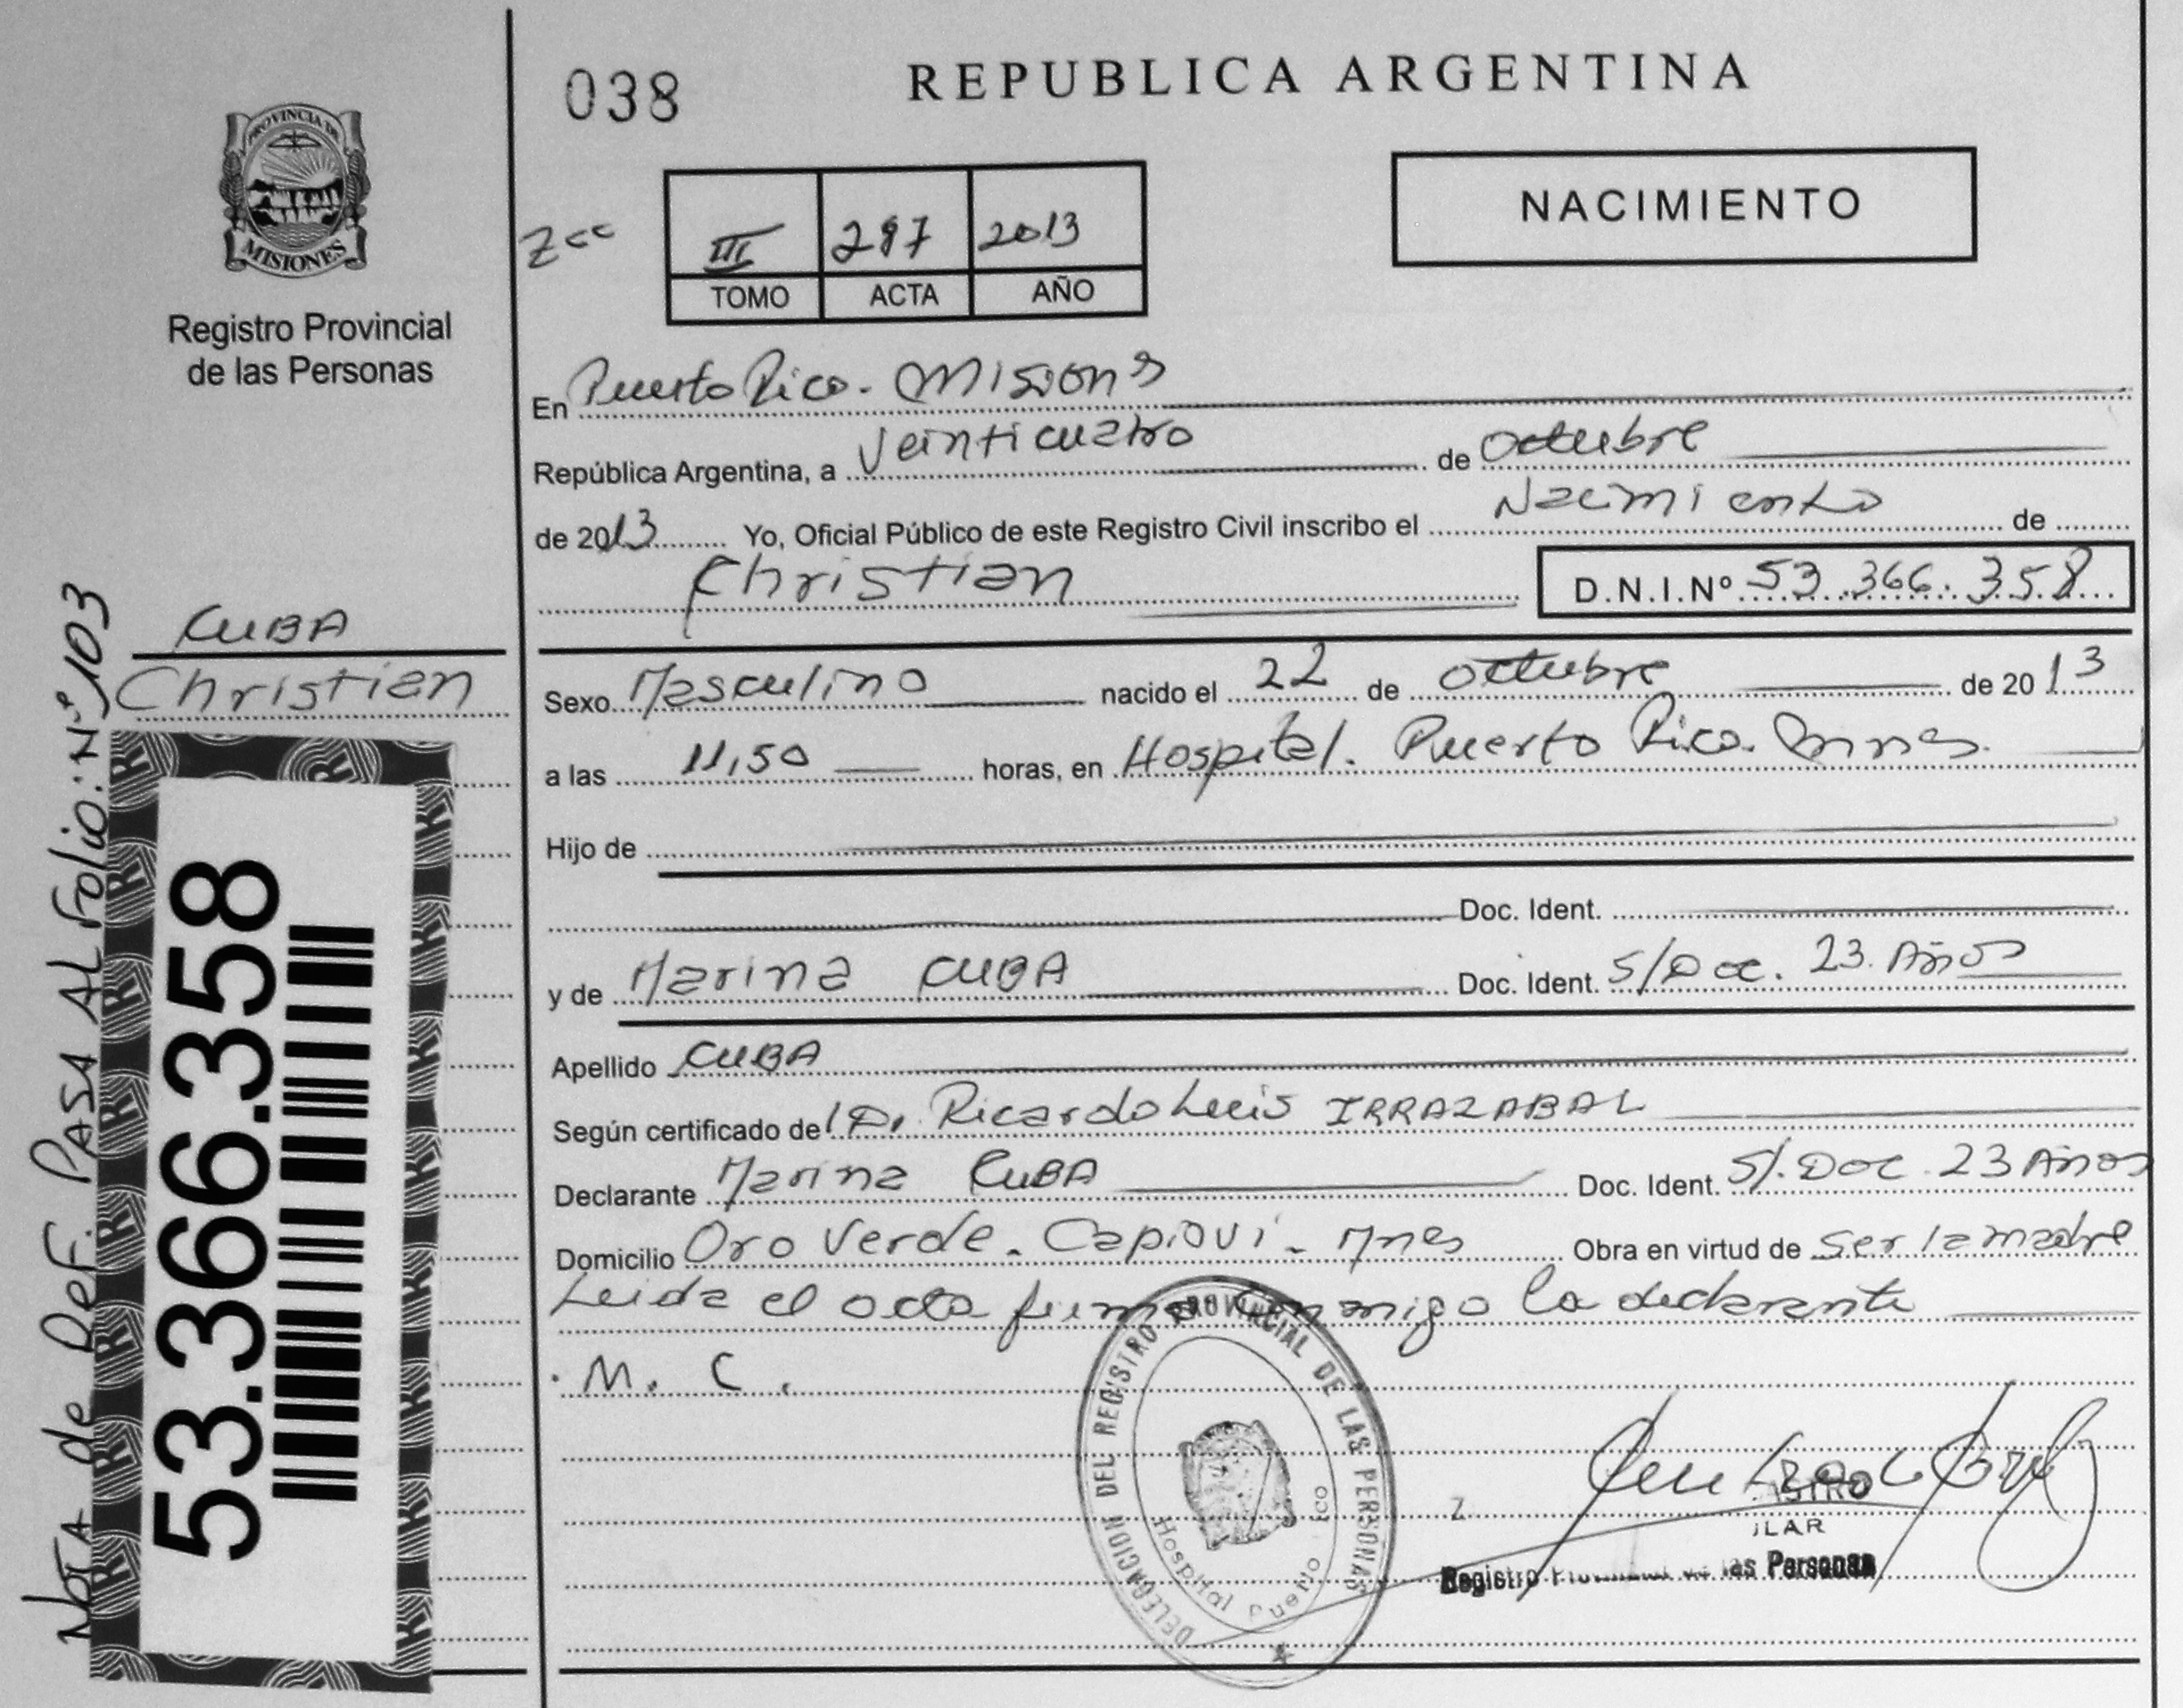 038
REPUBLICA ARGENTINA
NACIMIENTO
PROVINCIA DE
MISIONES
Registro Provincial
de las Personas
III 297 2013
TOMO ACTA AÑO
En Puerto Rico. Misiones
República Argentina, a Veinticuatro de Octubre
de 2013 Yo, Oficial Público de este Registro Civil inscribo el Nacimiento de
Christian D.N.I.Nº 53.366.358
CUBA
Christian
Nota de Def. PASA AL Folio: Nº 103
53.366.358
Sexo Masculino nacido el 22 de octubre de 2013
a las 11,50 horas, en Hospital. Puerto Rico. Mnes.
Hijo de
Doc. Ident.
y de Marina CUBA Doc. Ident. S/Doc. 23. Años
Apellido CUBA
Según certificado de l Dr. Ricardo Luis IRRAZABAL
Declarante Marina CUBA Doc. Ident. S/. Doc. 23 Años
Domicilio Oro Verde. Capiovi - Mnes Obra en virtud de ser la madre
Leida el acta firma conmigo la declarante
. M. C.
DELEGACION DEL REGISTRO PROVINCIAL DE LAS PERSONAS
Hospital
Registro las Personas